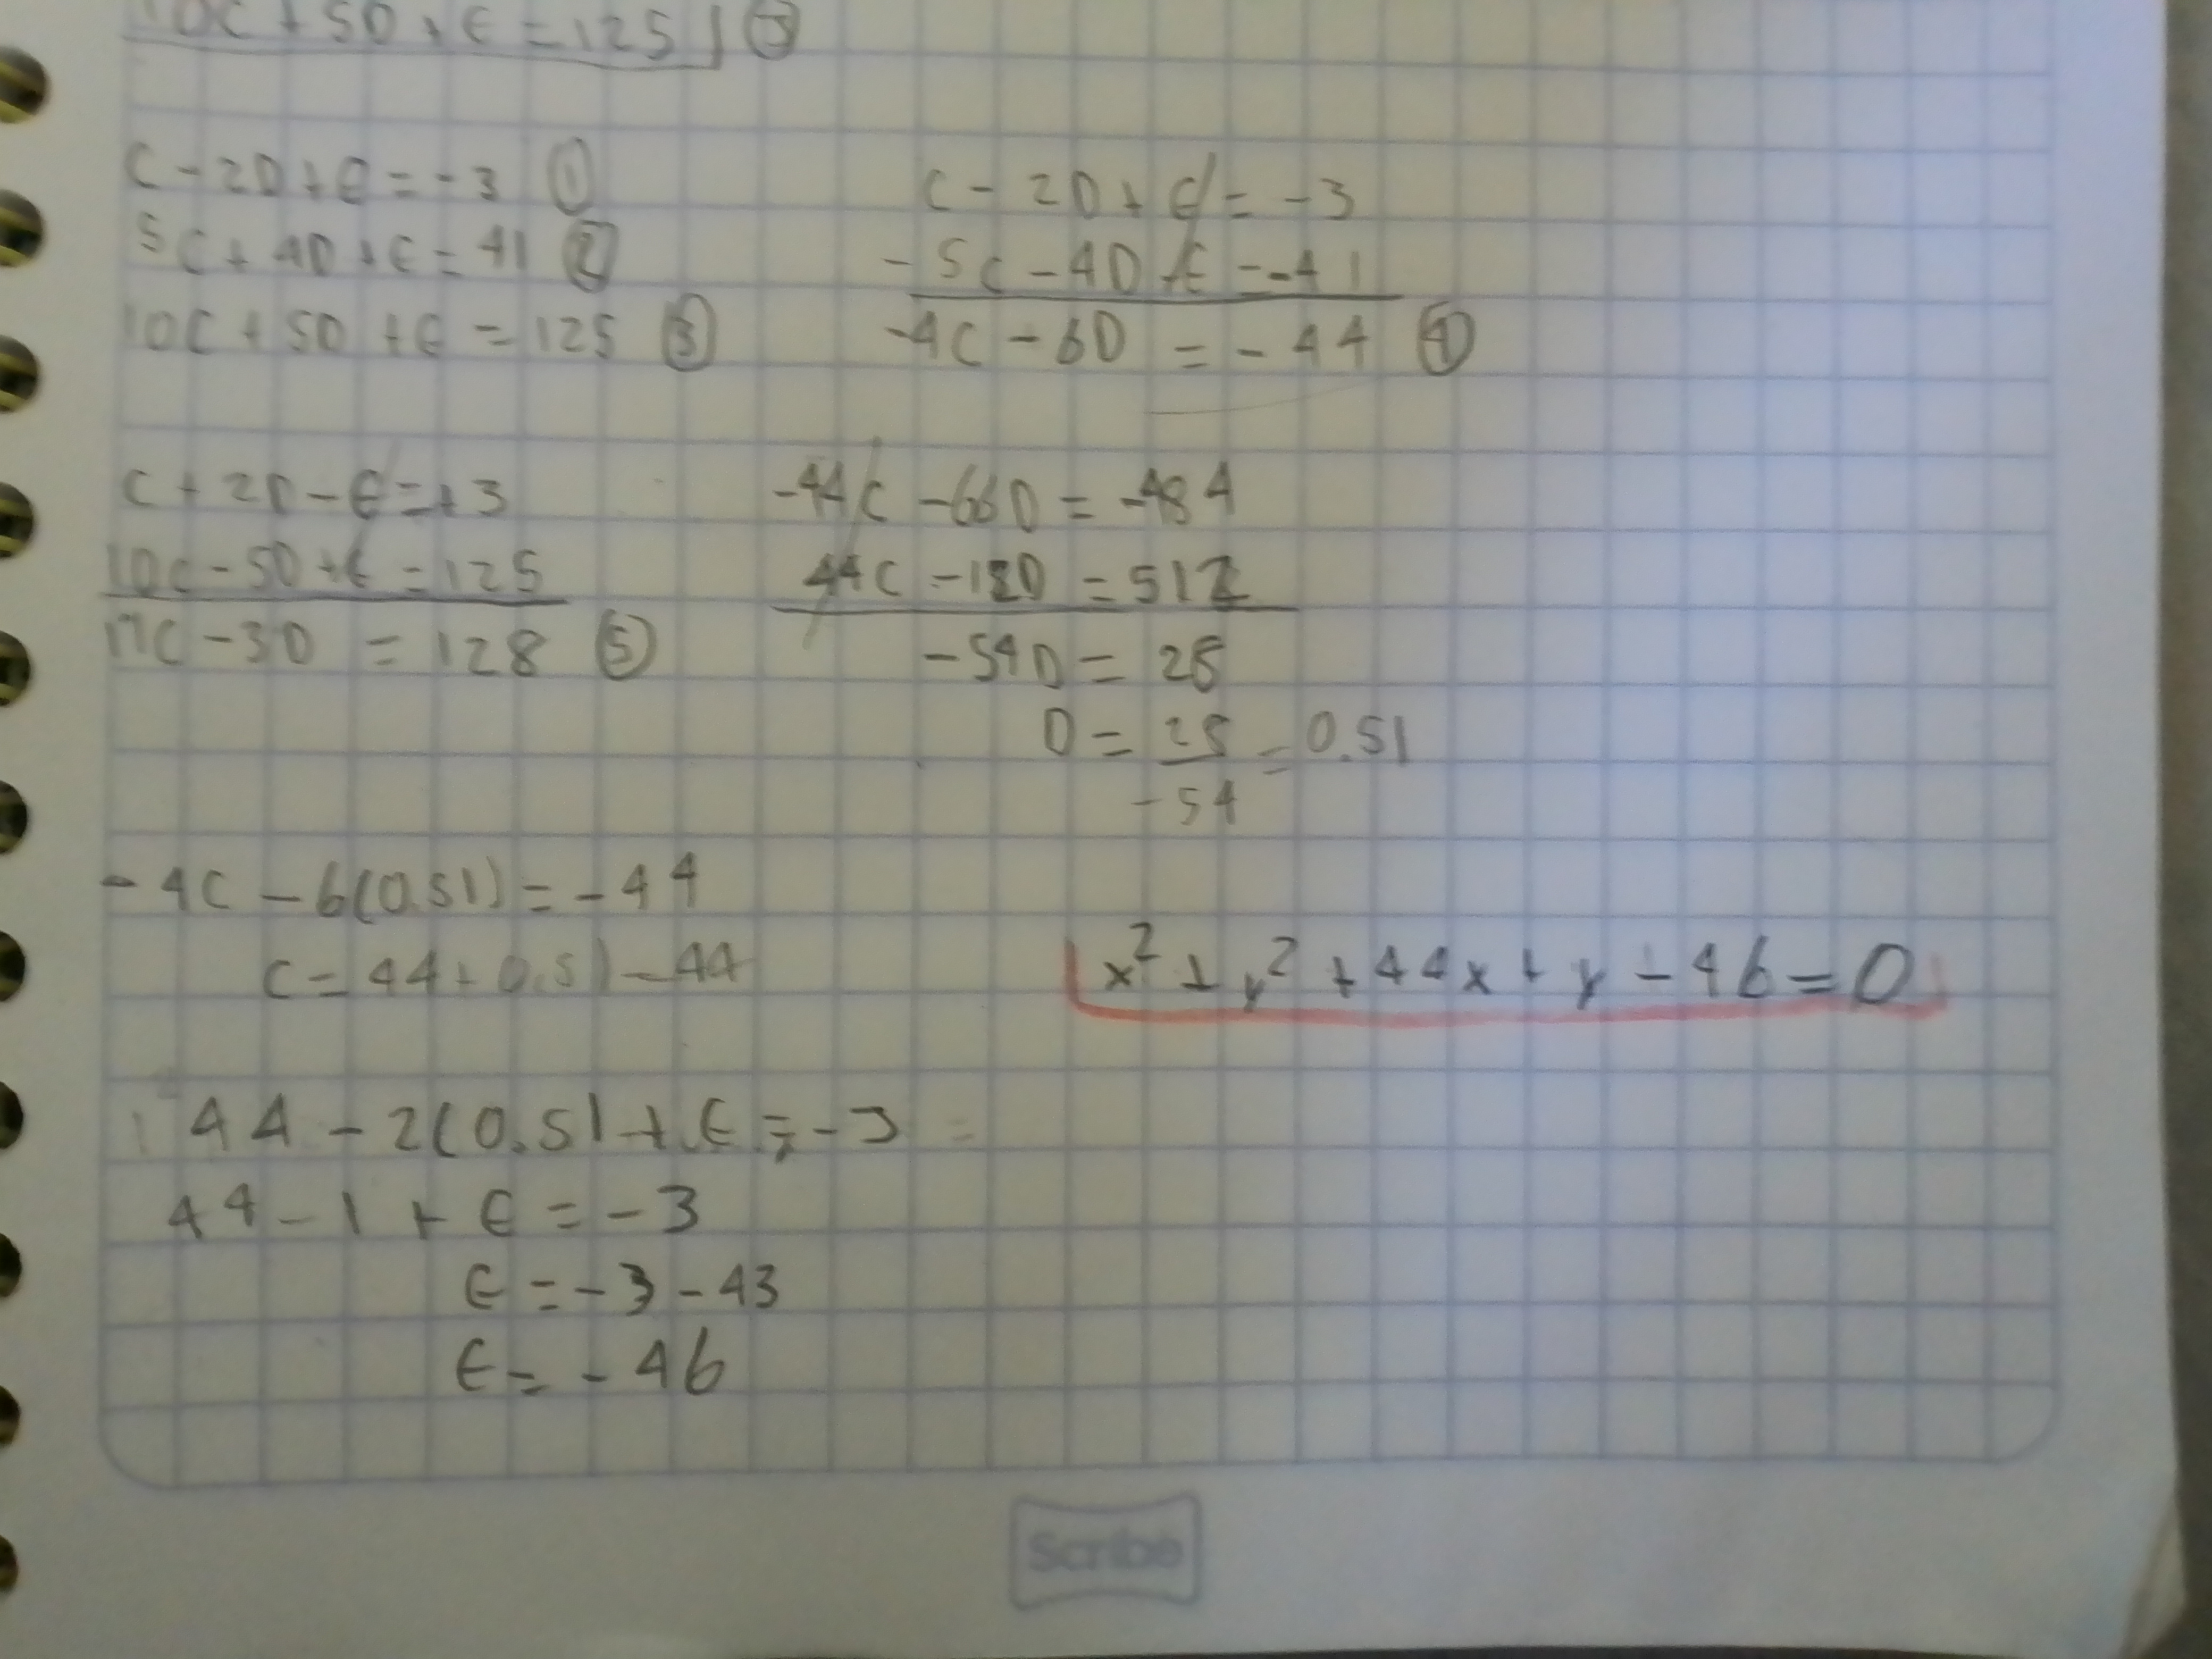 10C + 5D + E = 125 ③
C - 2D + E = -3 ①
5C + 4D + E = 41 ②
10C + 5D + E = 125 ③
C - 2D + E = -3
-5C - 4D - E = -41
-4C - 6D = -44 ④
C + 2D - E = +3
10C - 5D + E = 125
11C - 3D = 128 ⑤
-44C - 66D = -484
44C - 12D = 512
-54D = 28
D = 28/-54 = 0.51
-4C - 6(0.51) = -44
C = 44 + 0.51 - 44
x² + y² + 44x + y - 46 = 0
44 - 2(0.51 + E = -3
44 - 1 + E = -3
E = -3 - 43
E = -46
Scribe